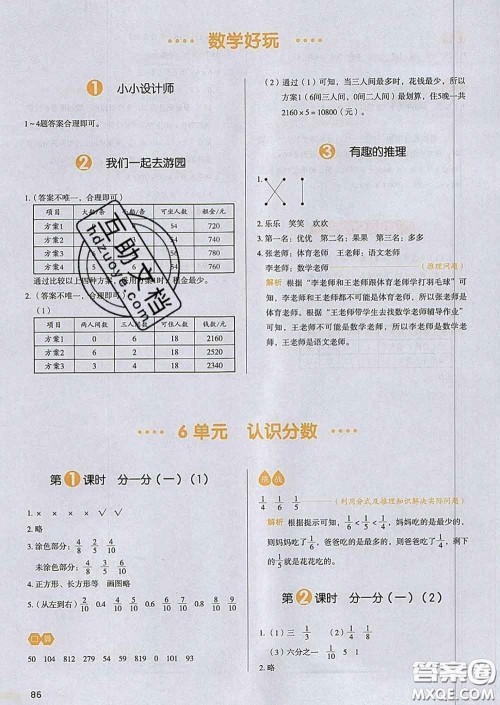 数学好玩
1 小小设计师
1~4题答案合理即可。
2 我们一起去游园
1.(答案不唯一,合理即可)
项目 大船/条 可坐人数 租金/元
方案1 54 720
方案2 54 740
方案3 54
方案4 5 6 760
2.(答案不唯一,合理即可)
(1)
项目 两人间数 三人间数 可住人数 钱数/元
方案1 0 6 18 2160
方案2 18 2240
方案3 18 2340
(2)通过(1)可知,当三人间最多时,花钱最少,所以
方案1(6间三人间,0间二人间)最划算,住5晚一共
2160×5=10800(元)。
3 有趣的推理
1.
2.乐乐 笑笑 欢欢
3.第一名:优优 第二名:果果 第三名:多多
4.张老师:体育老师 王老师:语文老师
李老师:数学老师
(推理问题)
解析 根据“李老师和王老师跟体育老师学打羽毛球”可
知,李老师和王老师都不可能是体育老师,所以张老师是
体育老师。根据“王老师带学生去找数学老师辅导功课”
可知,王老师不可能是数学老师,所以李老师是数学老
师,王老师是语文老师。
6单元 认识分数
第1课时 分一分(一)(1)
1. × × × × √ √
2.略
3.涂色部分:4/8 2/5 4/10
未涂色部分:4/8 3/5 6/10
4.正方形、长方形等 画图略
5.(从左到右)2/10 0.4 5/10 0.6 7/10 0.8 9/10
口算
50 104 812 279 54 19 0 101 193
86
挑战
1/4 1/6 1/5
(利用分式及推理知识解决实际问题)
解析 根据提示可知,1/6<1/5<1/4,妈妈吃的是最少的,
则妈妈吃了1/6,爸爸吃的是最多的,则爸爸吃了1/4,剩下
的1/5就是花花吃的。
第2课时 分一分(一)(2)
1.(1)三 1/3 (2)四 1/4
(3)六分之一 1/10 5 1
2.略
互助文档
hdzuoye.com
答案圈
MXQE.COM